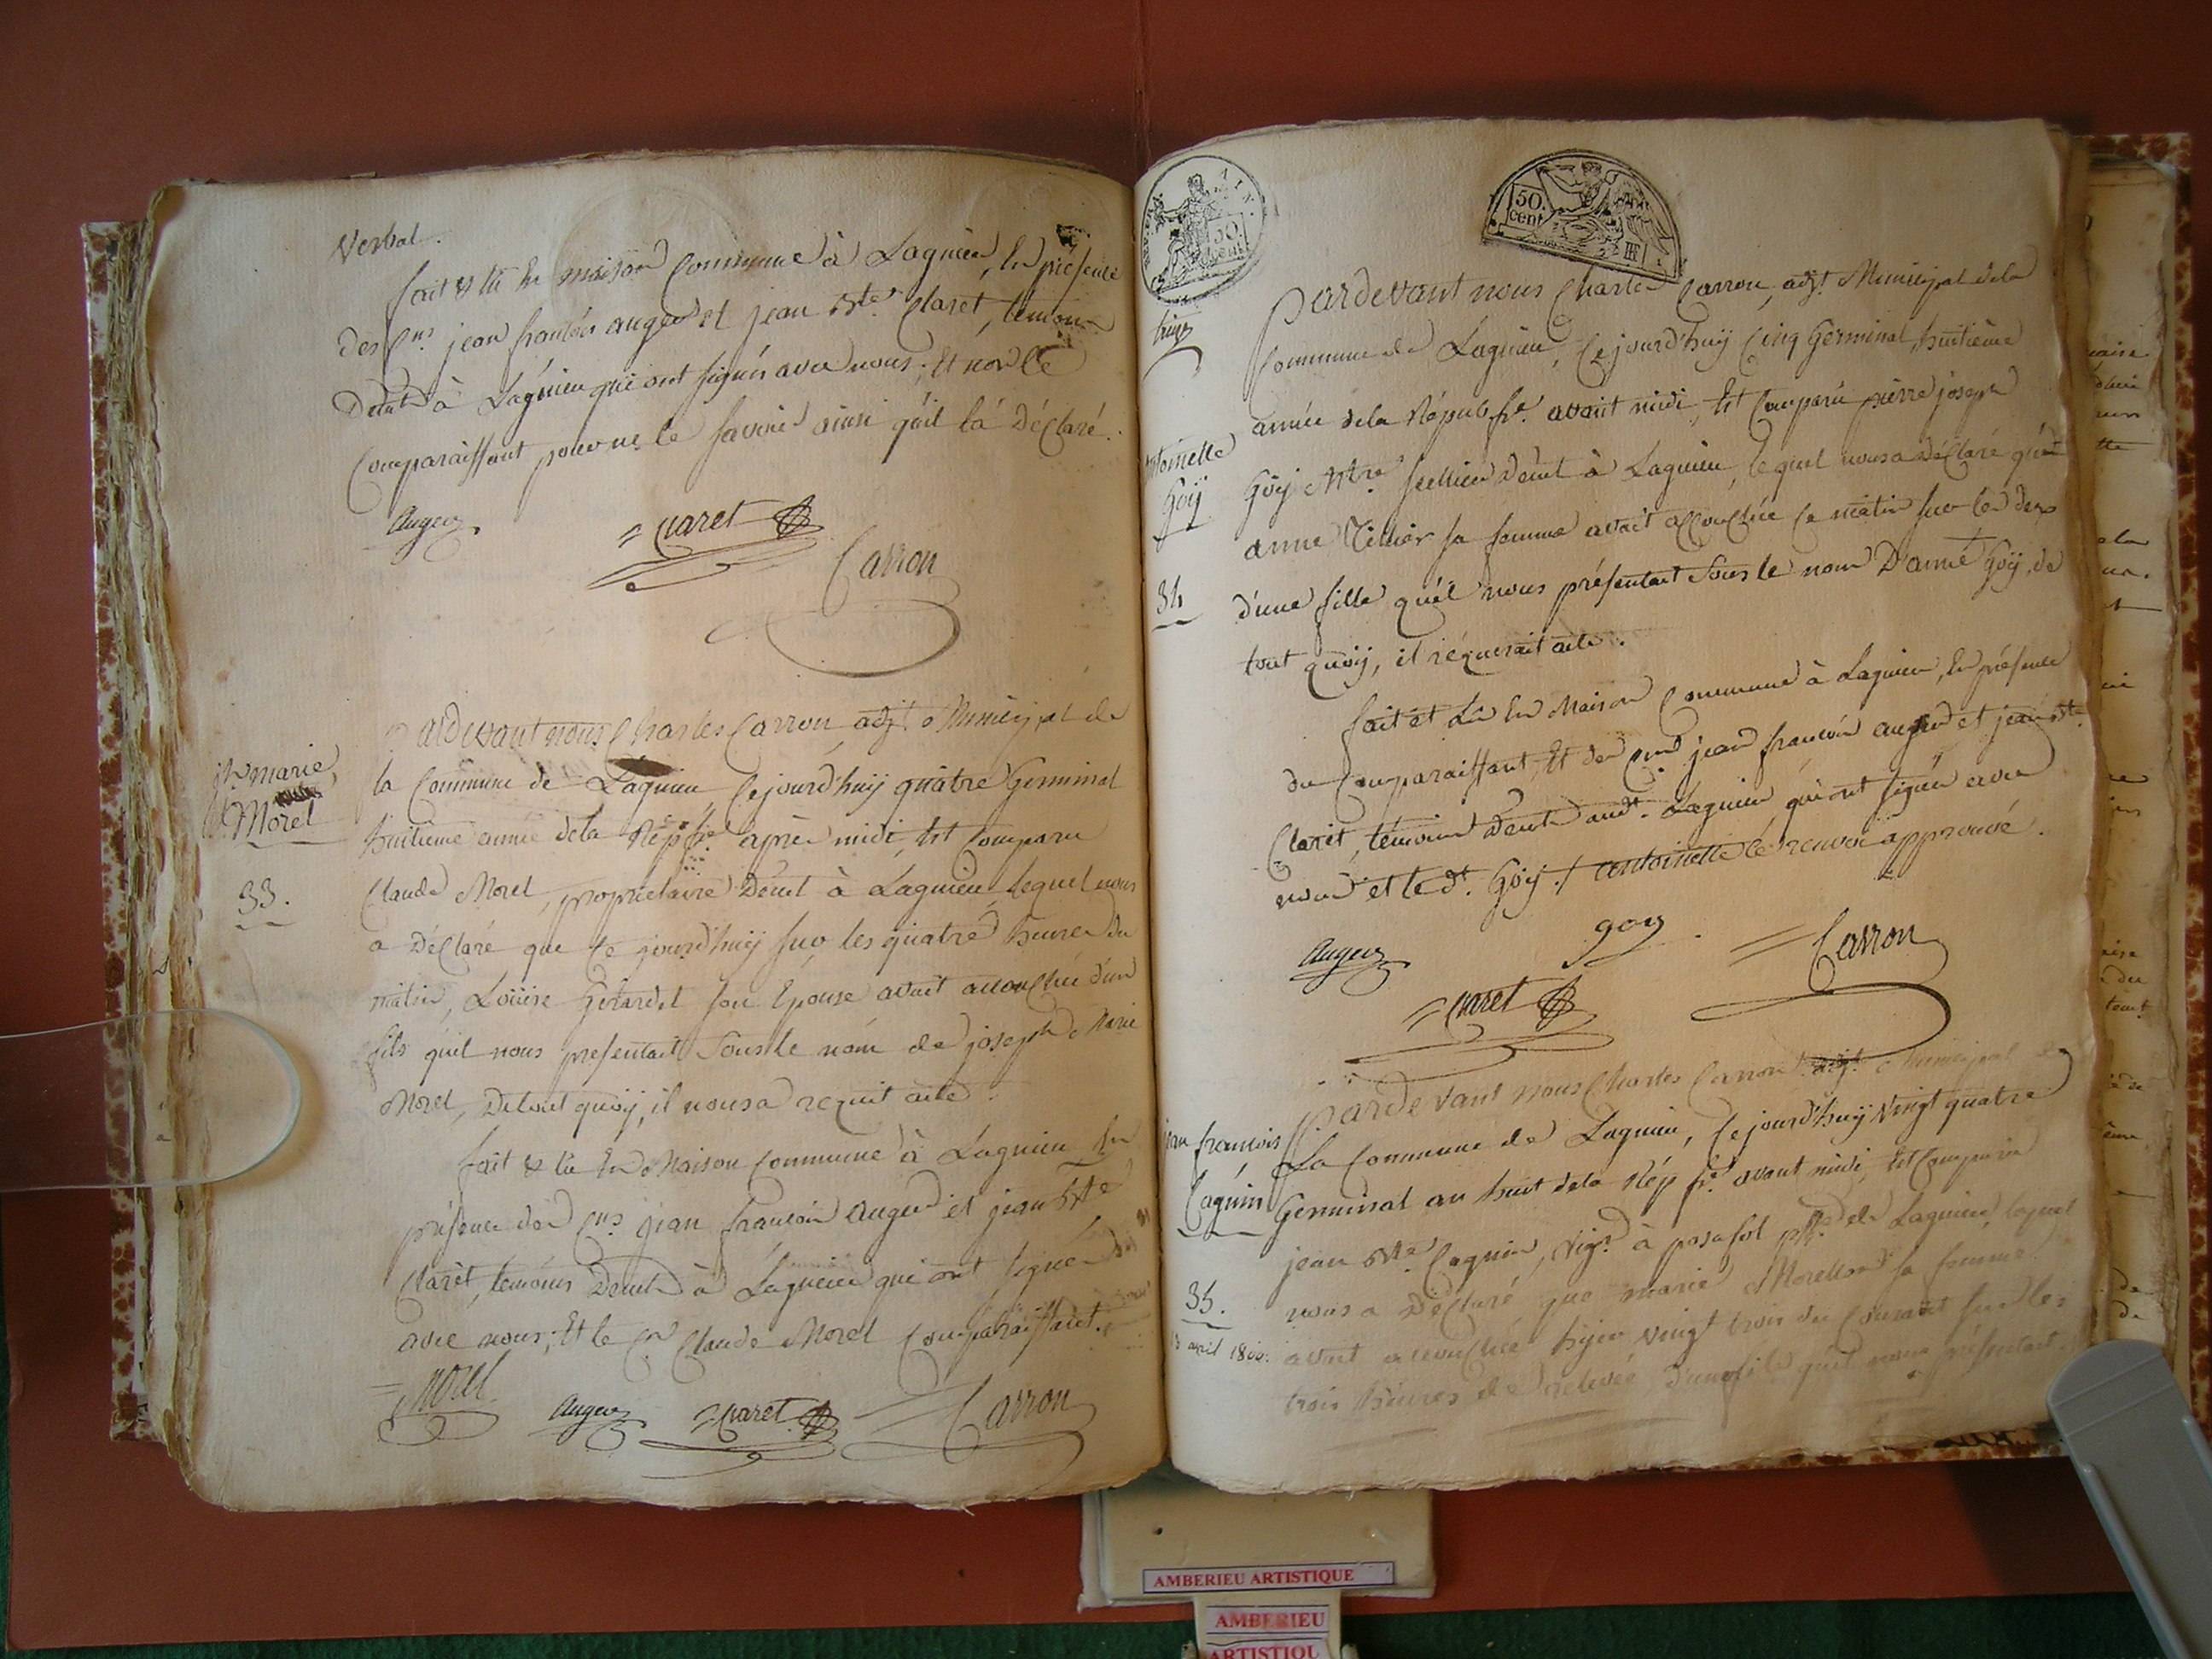 Verbal.
fait & lû En maison Commune à Lagnieu, En présence
des Cns jean françois auger et jean Bte Claret, temoins
Demt à Lagnieu qui ont signés avec nous; Et non le
Comparaissant pour ne le savoir ainsi qu'il l'a Déclaré.
Auger
Claret
Carron
jh marie
Morel
33.
Pardevant nous Charles Carron, adjt Municipal de
la Commune de Lagnieu, Cejourd'huij quatre Germinal
huitieme année dela Rép fse après midi, Est Comparu
Claude Morel, propriétaire Demt à Lagnieu, lequel nous
a Déclaré que Ce jourd'huij sur les quatre heures du
matin, Loüise Girardet son Epouse avait accouchée d'un
fils qu'il nous presentait Sous le nom de joseph Marie
Morel, De tout quoij, il nous a requit acte.
fait & lû En Maison Commune à Lagnieu, En
présence des Cns jean françois Auger et jean Bte
Claret, temoins Demt à Lagnieu qui ont signés
avec nous; Et le Cn Claude Morel Comparaissant.
Morel
Auger
Claret
Carron
50.
cent
50.
cent
Pardevant nous Charles Carron, adjt Municipal dela
Commune de Lagnieu, Cejourd'huij Cinq Germinal, huitième
année dela Répub fse avant midi, Est Comparu pierre joseph
Goÿ
34
Goÿ Mtre Sellier Demt à Lagnieu, lequel nous a Déclaré qu'
anne sa femme avait accouchée Ce matin sur les deux
d'une fille qu'il nous présentait Sous le nom D'anné Goÿ, de
tout quoij, il réquerait acte.
fait et Lû En Maison Commune à Lagnieu, En présence
du Comparaissant, Et des Cns jean françois auger et jean Bte
Claret, témoins Demt audt Lagnieu qui ont signés avec
nous et le dt Goÿ ./ antoinette le renvoi approuvé.
Auger
goy
Carron
Claret
jean françois
Cagnin
35.
avril 1800.
Pardevant nous Charles Carron adjt Municipal de
La Commune de Lagnieu, Cejourd'huij Vingt quatre
Germinal an huit dela Rép fse avant midi, Est Comparu
jean Bte Cagnin, Vigr à posafol de Lagnieu, lequel
nous a Déclaré que marie sa femme
avait accouchée hyer vingt trois du Courant sur les
trois heures de relevée d'un fils qu'il nous présentait